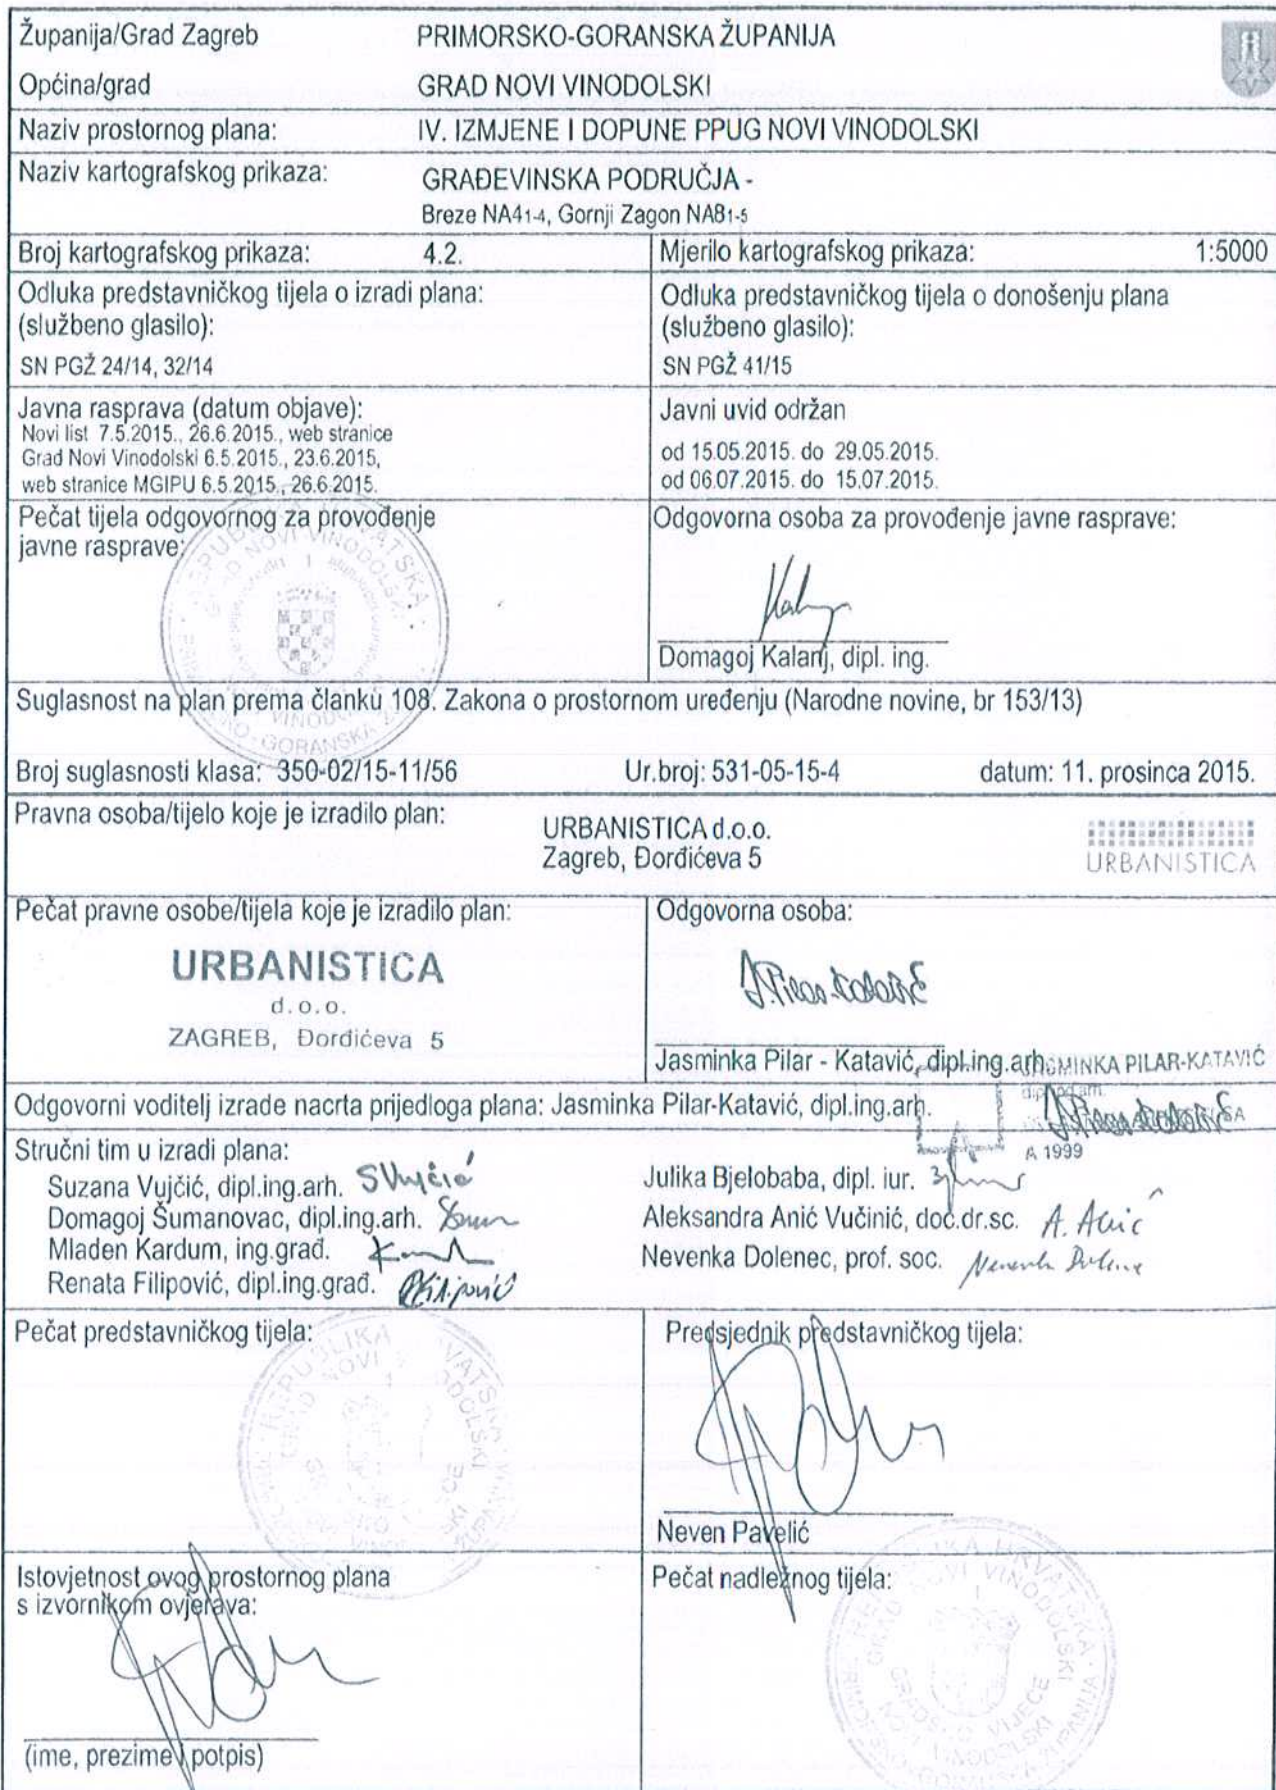 Županija/Grad Zagreb PRIMORSKO-GORANSKA ŽUPANIJA
Općina/grad GRAD NOVI VINODOLSKI
Naziv prostornog plana: IV. IZMJENE I DOPUNE PPUG NOVI VINODOLSKI
Naziv kartografskog prikaza: GRAĐEVINSKA PODRUČJA -
Breze NA41-4, Gornji Zagon NA81-5
Broj kartografskog prikaza: 4.2.
Mjerilo kartografskog prikaza: 1:5000
Odluka predstavničkog tijela o izradi plana:
(službeno glasilo):
SN PGŽ 24/14, 32/14
Odluka predstavničkog tijela o donošenju plana
(službeno glasilo):
SN PGŽ 41/15
Javna rasprava (datum objave):
Novi list 7.5.2015., 26.6.2015., web stranice
Grad Novi Vinodolski 6.5.2015., 23.6.2015,
web stranice MGIPU 6.5.2015., 26.6.2015.
Javni uvid održan
od 15.05.2015. do 29.05.2015.
od 06.07.2015. do 15.07.2015.
Pečat tijela odgovornog za provođenje
javne rasprave:
REPUBLIKA HRVATSKA
GRAD NOVI VINODOLSKI
Odgovorna osoba za provođenje javne rasprave:
Domagoj Kalanj, dipl. ing.
Suglasnost na plan prema članku 108. Zakona o prostornom uređenju (Narodne novine, br 153/13)
Broj suglasnosti klasa: 350-02/15-11/56 Ur.broj: 531-05-15-4 datum: 11. prosinca 2015.
Pravna osoba/tijelo koje je izradilo plan:
URBANISTICA d.o.o.
Zagreb, Đorđićeva 5
URBANISTICA
Pečat pravne osobe/tijela koje je izradilo plan:
URBANISTICA
d.o.o.
ZAGREB, Đorđićeva 5
Odgovorna osoba:
J.Pilar-Katavić
Jasminka Pilar - Katavić, dipl.ing.arh.
JASMINKA PILAR-KATAVIĆ
A 1999
Odgovorni voditelj izrade nacrta prijedloga plana: Jasminka Pilar-Katavić, dipl.ing.arh.
Stručni tim u izradi plana:
Suzana Vujčić, dipl.ing.arh. SVujčić
Domagoj Šumanovac, dipl.ing.arh.
Mladen Kardum, ing.građ.
Renata Filipović, dipl.ing.građ. RFilipović
Julika Bjelobaba, dipl. iur.
Aleksandra Anić Vučinić, doc.dr.sc. A. Anić
Nevenka Dolenec, prof. soc.
Pečat predstavničkog tijela:
Predsjednik predstavničkog tijela:
Neven Pavelić
Istovjetnost ovog prostornog plana
s izvornikom ovjerava:
(ime, prezime i potpis)
Pečat nadležnog tijela:
GRAD NOVI VINODOLSKI
GRADSKO VIJEĆE